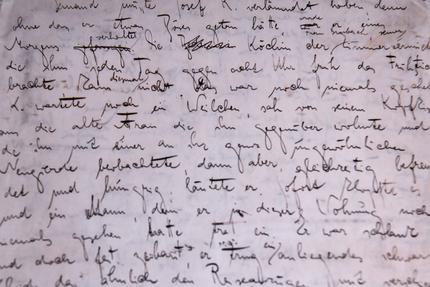 Jemand mußte Josef K. verleumdet haben, denn
ohne daß er etwas Böses getan hätte, wurde er eines
Morgens verhaftet. Die Köchin der
die ihm jeden Tag gegen acht Uhr früh das Frühstück
brachte kam diesmal nicht. Das war noch niemals gescheh
K. wartete noch ein Weilchen, sah von seinem Kopfkis
aus die alte Frau die ihm gegenüber wohnte und
die ihn mit einer an ihr ganz ungewöhnlichen
Neugierde beobachtete, dann aber, gleichzeitig befrem
det und hungrig läutete er. Sofort klopfte es
und ein Mann, den er in dieser Wohnung noch
niemals gesehen hatte trat ein. Er war schlank
und doch fest gebaut, er trug ein anliegendes schwar
ähnlich den Reiseanzügen mit versch